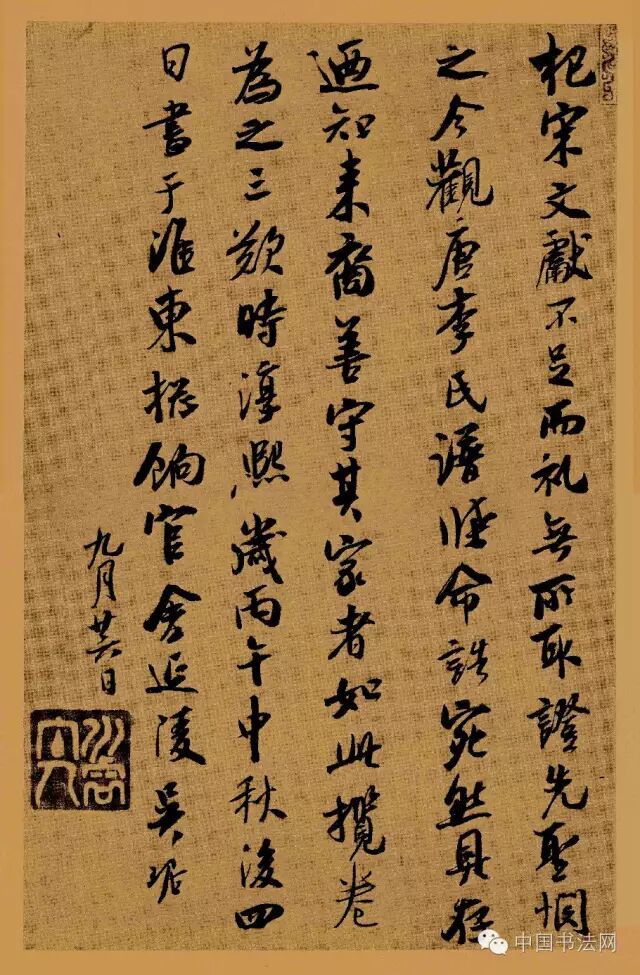 杞宋文獻不足而礼無所取證先聖憫
之今觀唐李氏譜牒命誥宛然具在
迺知来裔善守其家者如此攬卷
為之三歎時淳熙歲丙午中秋後四
日書于淮東揔餉官舍延陵吴琚
九月廿六日
中国书法网